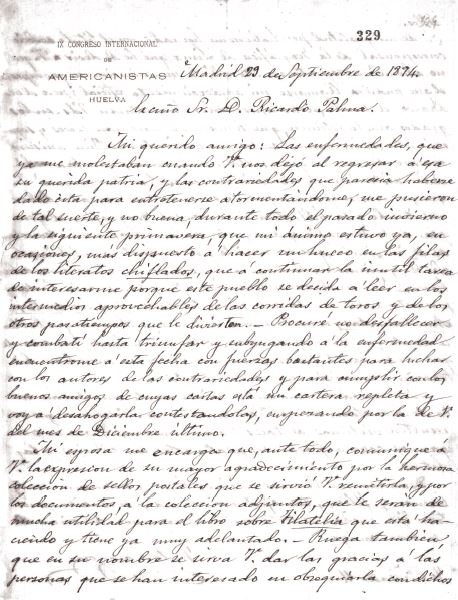 329
IX CONGRESO INTERNACIONAL
DE
AMERICANISTAS
HUELVA
Madrid 29 de Septiembre de 1894.
Sr. D. Ricardo Palma.
Mi querido amigo: Las enfermedades, que
ya me molestaban cuando V. nos dejó al regresar á esa
su querida patria, y las contrariedades que parecia haberse
dado cita para entretenerse atormentándome, me pusieron
de tal suerte, y no buena, durante todo el pasado invierno
y la siguiente primavera, que mi ánimo estuvo ya, en
ocasiones, mas dispuesto á hacer un hueco en las filas
de los literatos chiflados, que á continuar la inutil tarea
de interesarme porque este pueblo se decida á leer en los
intermedios aprovechables de las corridas de toros y de los
otros pasatiempos que le divierten. - Procuré no desfallecer
y combatí hasta triunfar y subyugando á la enfermedad
encuentrome á esta fecha con fuerzas bastantes para luchar
con los autores de las contrariedades y para cumplir con los
buenos amigos de cuyas cartas está mi cartera repleta y
voy á desahogarla contestandolas, empezando por la de V.
del mes de Diciembre último.
Mi esposa me encarga que, ante todo, comunique á
V. la expresion de su mayor agradecimiento por la hermosa
coleccion de sellos postales que se sirvió V. remitirla, y por
los documentos, á la coleccion adjuntos, que le serán de
mucha utilidad para el libro sobre Filatelia que está ha-
ciendo y tiene ya muy adelantado. - Ruega tambien,
que en su nombre se sirva V. dar las gracias á las
personas que se han interesado en obsequiarla con dichos